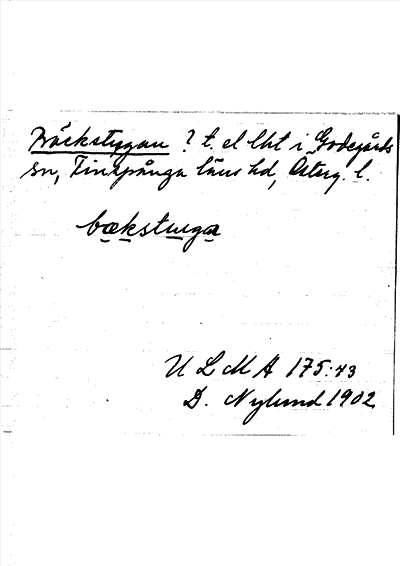 Bäckstugan ? t. el lht i Godegårds
sn, Finspånga läns hd, Österg. l.
bækstuga
ULMA 175:43
D. Nylund 1902